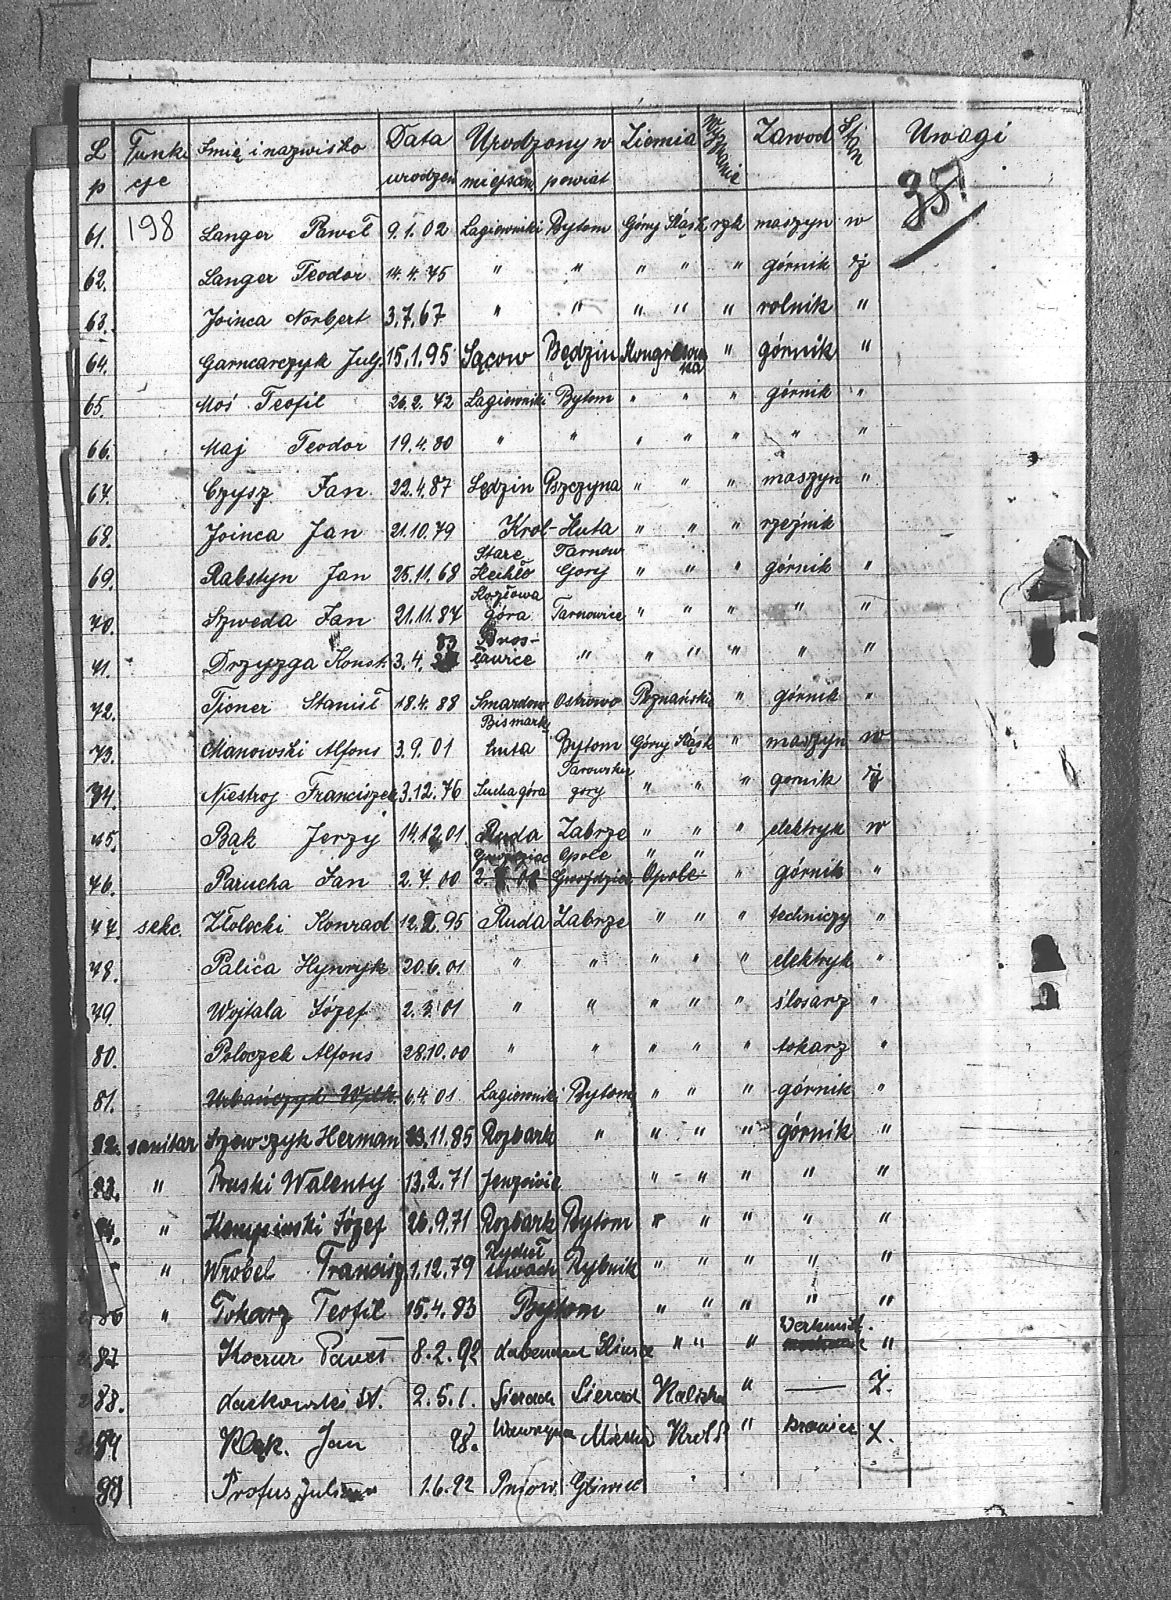 L p Funkcje Imię i nazwisko Data urodzeń Urodzony w miejscow powiat Ziemia Wyznanie Zawod Stan Uwagi
198 35!
61. Langer Paweł 9.1.02 Łagiewniki Bytom Górny Śląsk rzk maszyn w
62. Langer Teodor 14.4.75 " " " " " górnik żj
63. Joinca Norbert 3.7.67 " " " " " rolnik "
64. Garncarczyk Julj. 15.1.95 Sącow Będzin Kongresowna " górnik "
65. Moś Teofil 26.2.72 Łagiewniki Bytom " " " górnik "
66. Maj Teodor 19.4.80 " " " " " " "
67. Czysz Jan 22.4.87 Lędzin Pszczyna " " " maszyn "
68. Joinca Jan 21.10.79 Krol-Huta " " " rzeźnik
69. Rabstyn Jan 25.11.68 Stare Tarnow Gory " " " górnik "
70. Szweda Jan 21.11.87 Kozłowa góra Tarnowice " " " " "
71. Drzyzga Konst. 3.4. 83 Bros-ławice " " " " " "
72. Tjoner Stanisł 18.4.88 Smardow Ostrowo Poznański " górnik "
73. Manowski Alfons 3.9.01 Bismark huta Bytom Górny Śląsk " maszyn w
74. Niestroj Franciszek 3.12.76 Sucha góra Tarowskie gory " " " gornik żj
75. Bąk Jerzy 14.12.01 Ruda Zabrze " " " elektryk w
76. Parucha Jan 2.7.00 Opole " " Opole " górnik "
77. sekc. Złotocki Konrad 12.2.95 Ruda Zabrze " " " techniczy "
78. Palica Hynryk 20.6.01 " " " " " elektryk "
79. Wojtala Józef 2.3.01 " " " " " ślosarz "
80. Poloczek Alfons 28.10.00 " " " " " tokarz "
81. Urbańczyk Wilh. 6.4.01 Łagiewniki Bytom " " " górnik "
82. sanitar Szewczyk Herman 23.11.85 Rozbark " " " " górnik "
83. " Pruski Walenty 13.2.71 " " " " "
84. " Kempinski Józef 26.9.71 Rozbark Bytom " " " " "
" Wróbel Francisz 1.12.79 Rydułtowach Rybnik " " " " "
86 " Tokarz Teofil 15.4.83 Bytom " " " " "
87 Kocrur Paweł 8.2.92 " " " "
88. Laskowski St. 2.5.1. Sieradz Sieradz Kaliska " — Ż.
89 Kłąk. Jan 98. "
90 Profus Julian 1.6.92 Pniow Gliwice